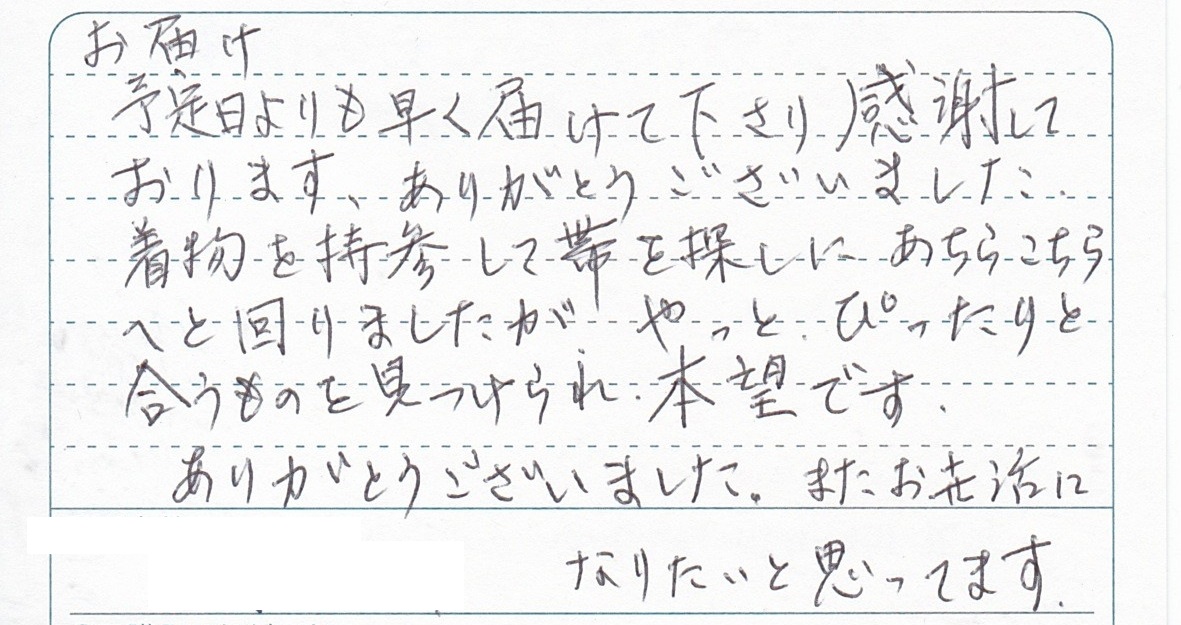 お届け
予定日よりも早く届けて下さり感謝して
おります、ありがとうございました.
着物を持参して帯を探しにあちらこちら
へと回りましたが やっと.ぴったりと
合うものを見つけられ.本望です.
ありがとうございました。またお世話に
なりたいと思ってます.